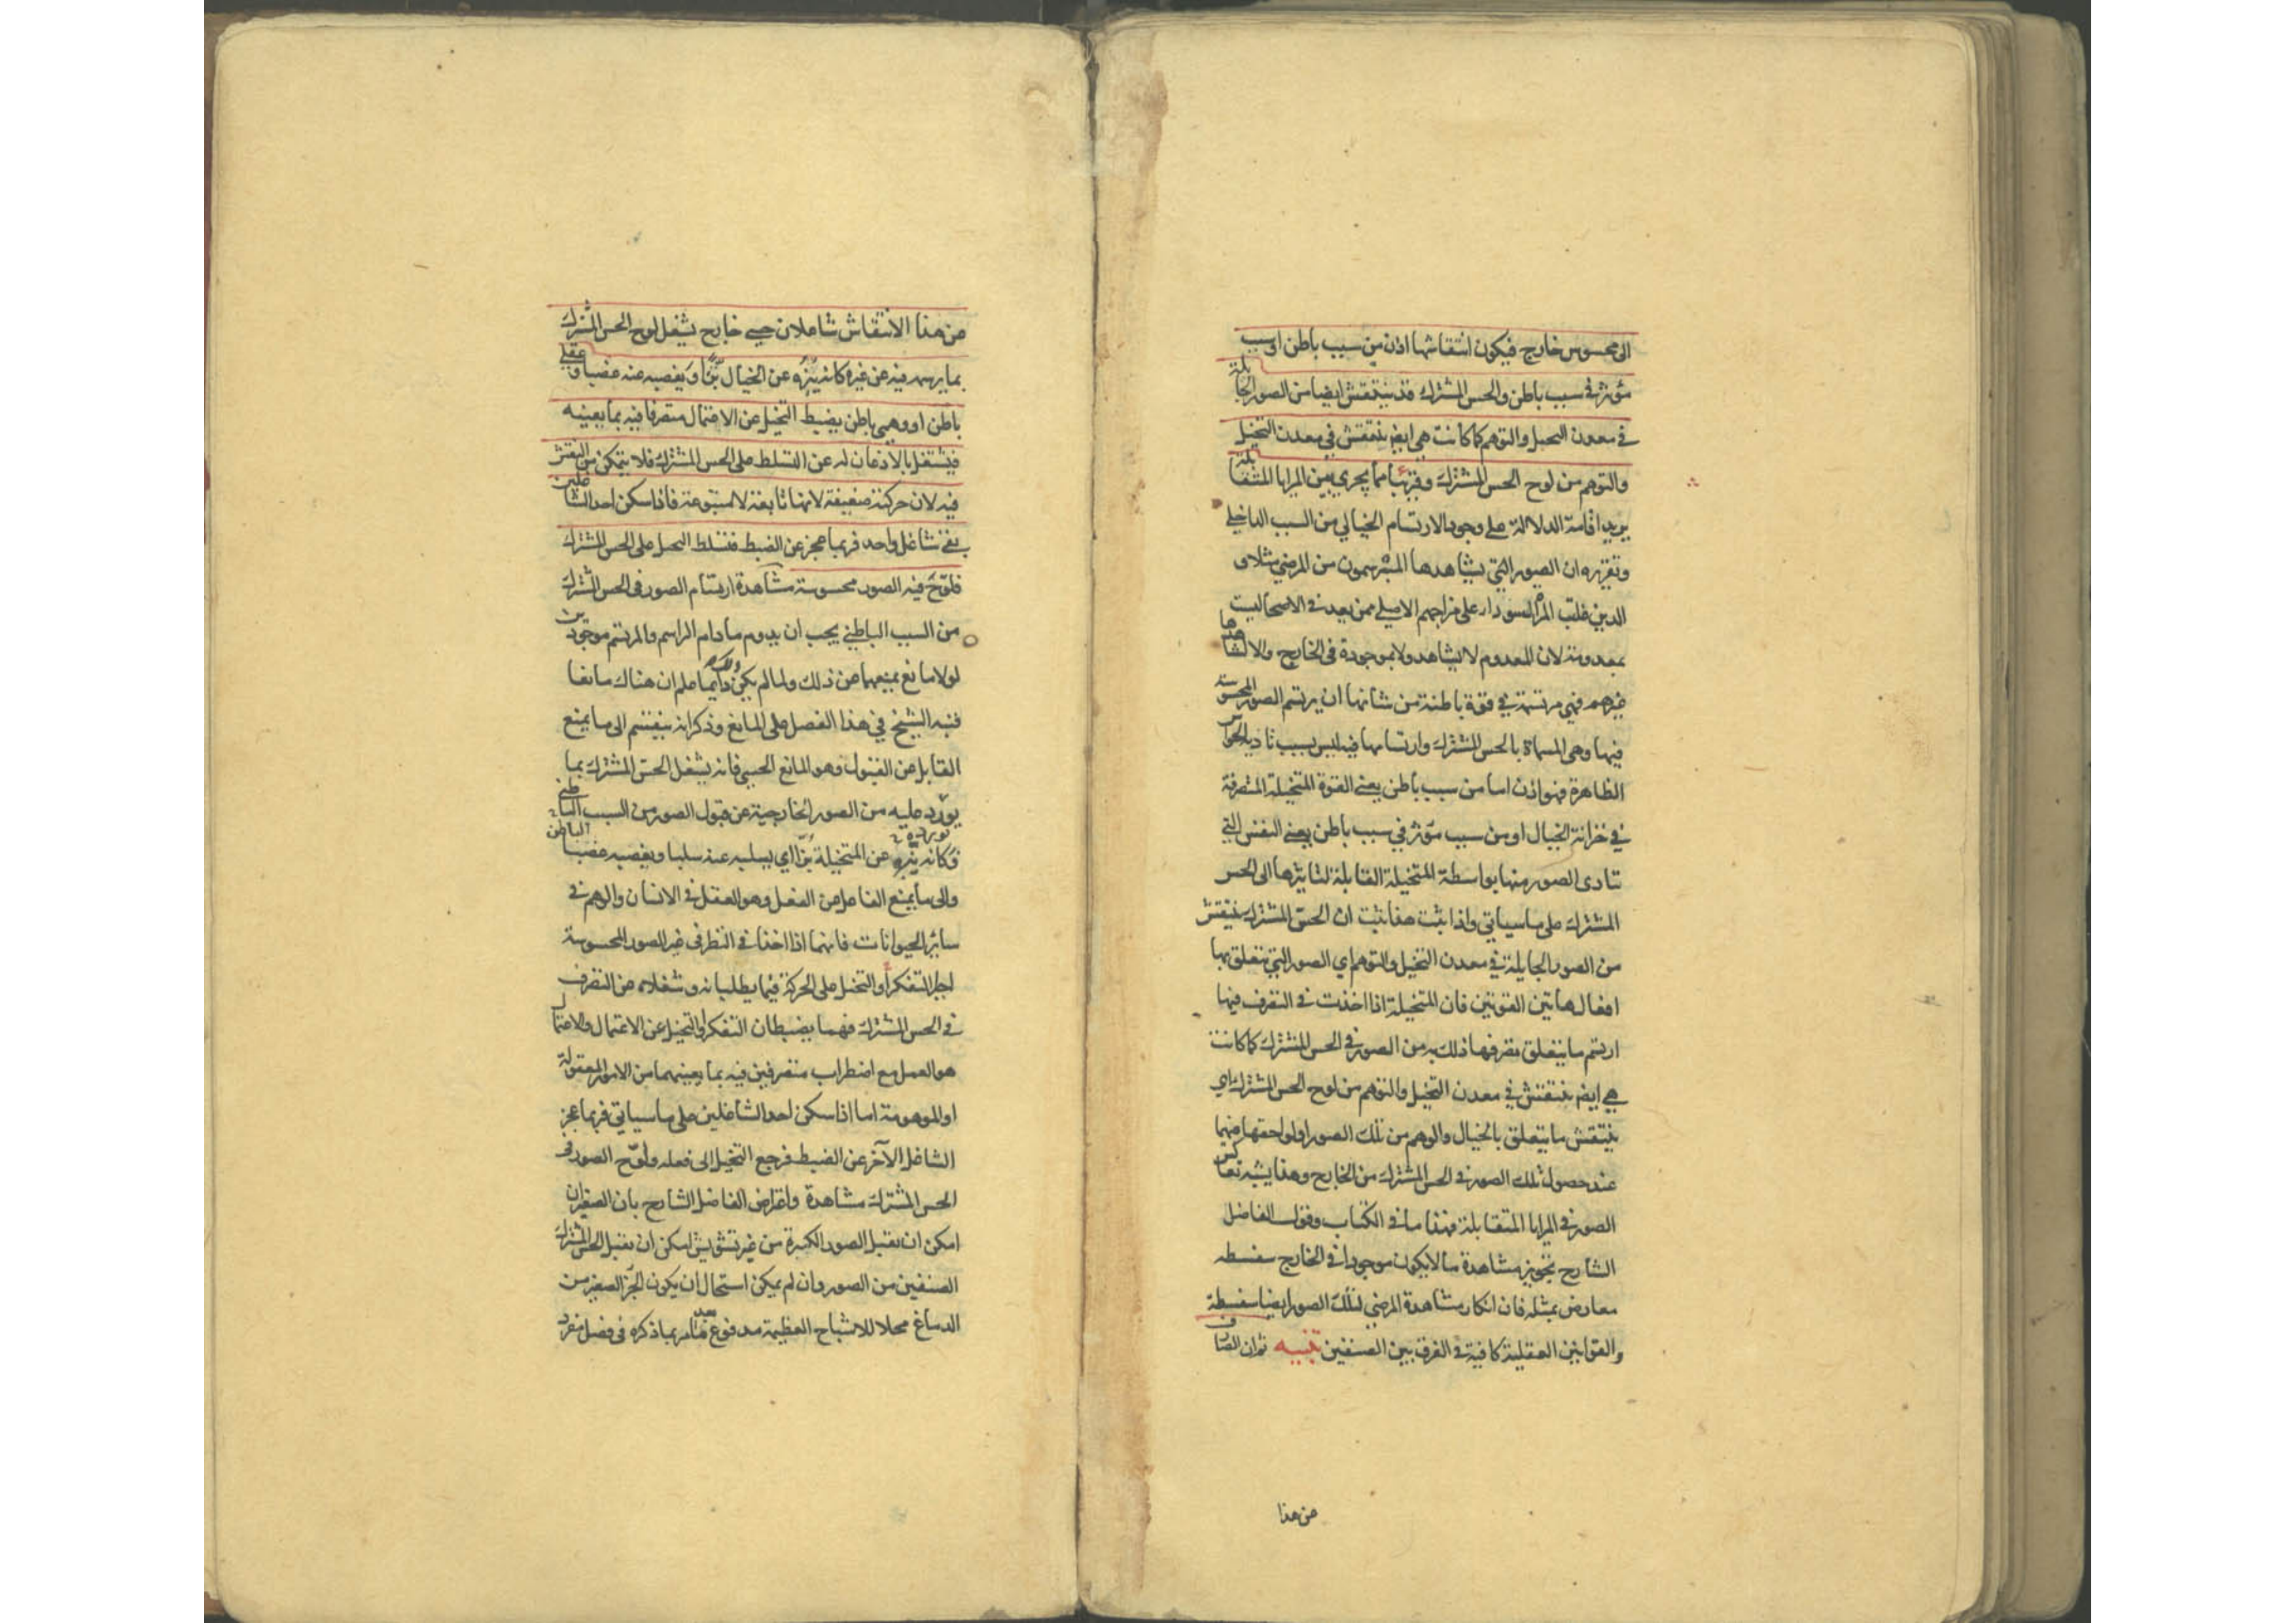 الى محسوس خارج فيكون انتقاشها اذن من سبب باطن او سبب
مؤثر في سبب باطن والحس المشترك قد ينتقش ايضا من الصور الجايلة
في معدن التخيل والتوهم كما كانت هي ايضا تنتقش في معدن التخيل
والتوهم من لوح الحس المشترك وقريبا مما يجري بين المرايا المتقابلة
يريد اقامة الدلالة على وجود الارتسام الخيالي من السبب الداخلي
وتقريره ان الصور التي يشاهدها المبرسمون من المرضى مثلا و
الذين غلبت المرة السوداء على مزاجهم الاصلي ممن يعد في الاصحا ليست
بمعدومة لان المعدوم لا يشاهد ولا بموجودة في الخارج والا لشاهدها
غيرهم فهي مرتسمة في قوة باطنة من شانها ان يرتسم الصور المحسوسة
فيها وهي المسماة بالحس المشترك وارتسامها فيه ليس بسبب تادية الحواس
الظاهرة فهو اذن اما من سبب باطن يعني القوة المتخيلة المتصرفة
في خزانة الخيال او من سبب مؤثر في سبب باطن يعني النفس التي
تتادى الصور منها بواسطة المتخيلة القابلة لتاثيرها الى الحس
المشترك على ما سياتي واذا ثبت هذا ثبت ان الحس المشترك ينتقش
من الصور الجايلة في معدن التخيل والتوهم اي الصور التي تتعلق بها
افعال هاتين القوتين فان المتخيلة اذا اخذت في التصرف فيها
ارتسم ما يتعلق تصرفها ذلك به من الصور في الحس المشترك كما كانت
هي ايضا تنتقش في معدن التخيل والتوهم من لوح الحس المشترك اي
ينتقش ما يتعلق بالخيال والوهم من تلك الصور او لواحقها فيهما
عند حصول تلك الصور في الحس المشترك من الخارج وهذا يشبه تعاكس
الصور في المرايا المتقابلة فهذا ما في الكتاب وقول الفاضل
الشارح تجويز مشاهدة ما لا يكون موجودا في الخارج سفسطه
معارض بمثله فان انكار مشاهدة المرضى لتلك الصور ايضا سفسطة
والقوانين العقلية كافية في الفرق بين الصنفين تنبيه ثم ان الصارف
عن هذا
عن هذا الانتقاش شاغلان حسي خارج يشغل لوح الحس المشترك
بما يرسمه فيه عن غيره كانه يبزه عن الخيال بزا ويغصبه عنه غصبا وعقلي
باطن او وهمي باطن يضبط التخيل عن الاعتمال متصرفا فيه بما يعينه
فيشتغل بالاذعان له عن التسلط على الحس المشترك فلا يتمكن من النقش
فيه لان حركته ضعيفة لانها تابعة لا متبوعة فاذا سكن احد الشاغلين
بقي شاغل واحد فربما عجز عن الضبط فتسلط التخيل على الحس المشترك
فلوح فيه الصور محسوسة مشاهدة ارتسام الصور في الحس المشترك
من السبب الباطني يجب ان يدوم ما دام الراسم والمرتسم موجودين
لولا مانع يمنعهما عن ذلك ولما لم يكن ذلك دايما علم ان هناك مانعا
فنبه الشيخ في هذا الفصل على المانع وذكر انه ينقسم الى ما يمنع
القابل عن القبول وهو المانع الحسي فانه يشغل الحس المشترك بما
يورد عليه من الصور الخارجية عن قبول الصور من السبب الباطني
فكانه يبزه عن المتخيلة بزا اي يسلبه عنه سلبا ويغصبه غصبا
والى ما يمنع الفاعل عن الفعل وهو العقل في الانسان والوهم في
سائر الحيوانات فانهما اذا اخذا في النظر في غير الصور المحسوسة
اجبرا التفكر او التخيل على الحركة فيما يطلبانه وشغلاه عن التصرف
في الحس المشترك فهما يضبطان التفكر والتخيل عن الاعتمال والاعتمال
هو العمل مع اضطراب متصرفين فيه بما يعينهما من الامور المعقولة
او الموهومة اما اذا سكن احد الشاغلين على ما سياتي فربما عجز
الشاغل الآخر عن الضبط فرجع التخيل الى فعله ولوح الصور في
الحس المشترك مشاهدة واعتراض الفاضل الشارح بان الصغير ان
امكن ان يقبل الصور الكبيرة من غير تشويش امكن ان يقبل الحس المشترك
الصنفين من الصور وان لم يمكن استحال ان يكون الجزء الصغير من
الدماغ محلا للاشباح العظيمة مدفوع بما ذكره في فصل مفرد